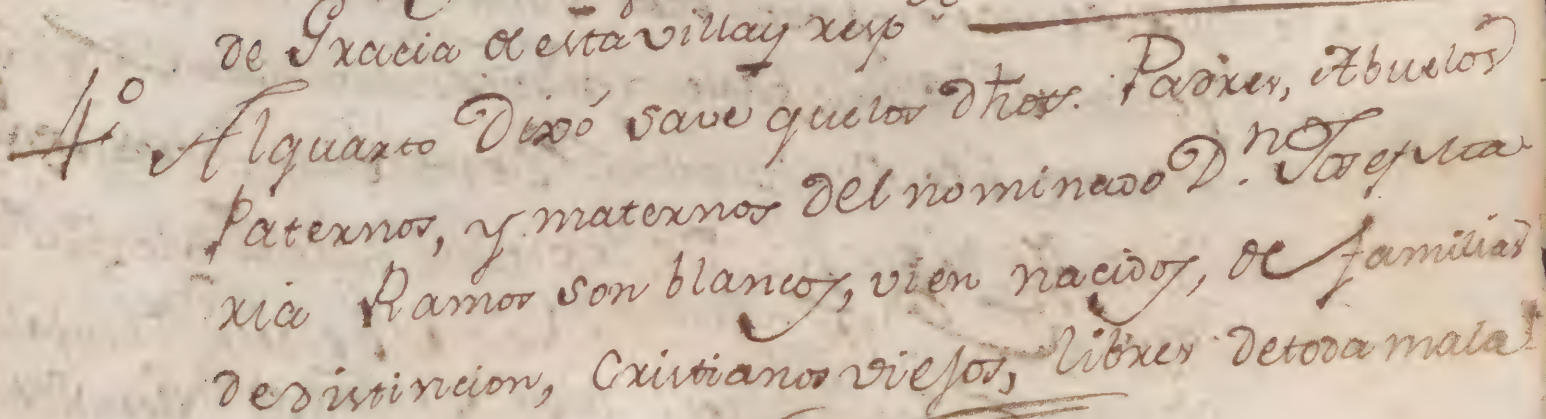 de Gracia de esta villa y resp.ᵈᵉ
4º Alquarto Dixó save quelos Dhos. Padres, Abuelos
Paternos, y maternos del nominado D.ⁿ Josef Ma
ria Ramos son blancos, vien nacidos, de familias
de distincion, Cristianos viejos, libres detoda mala